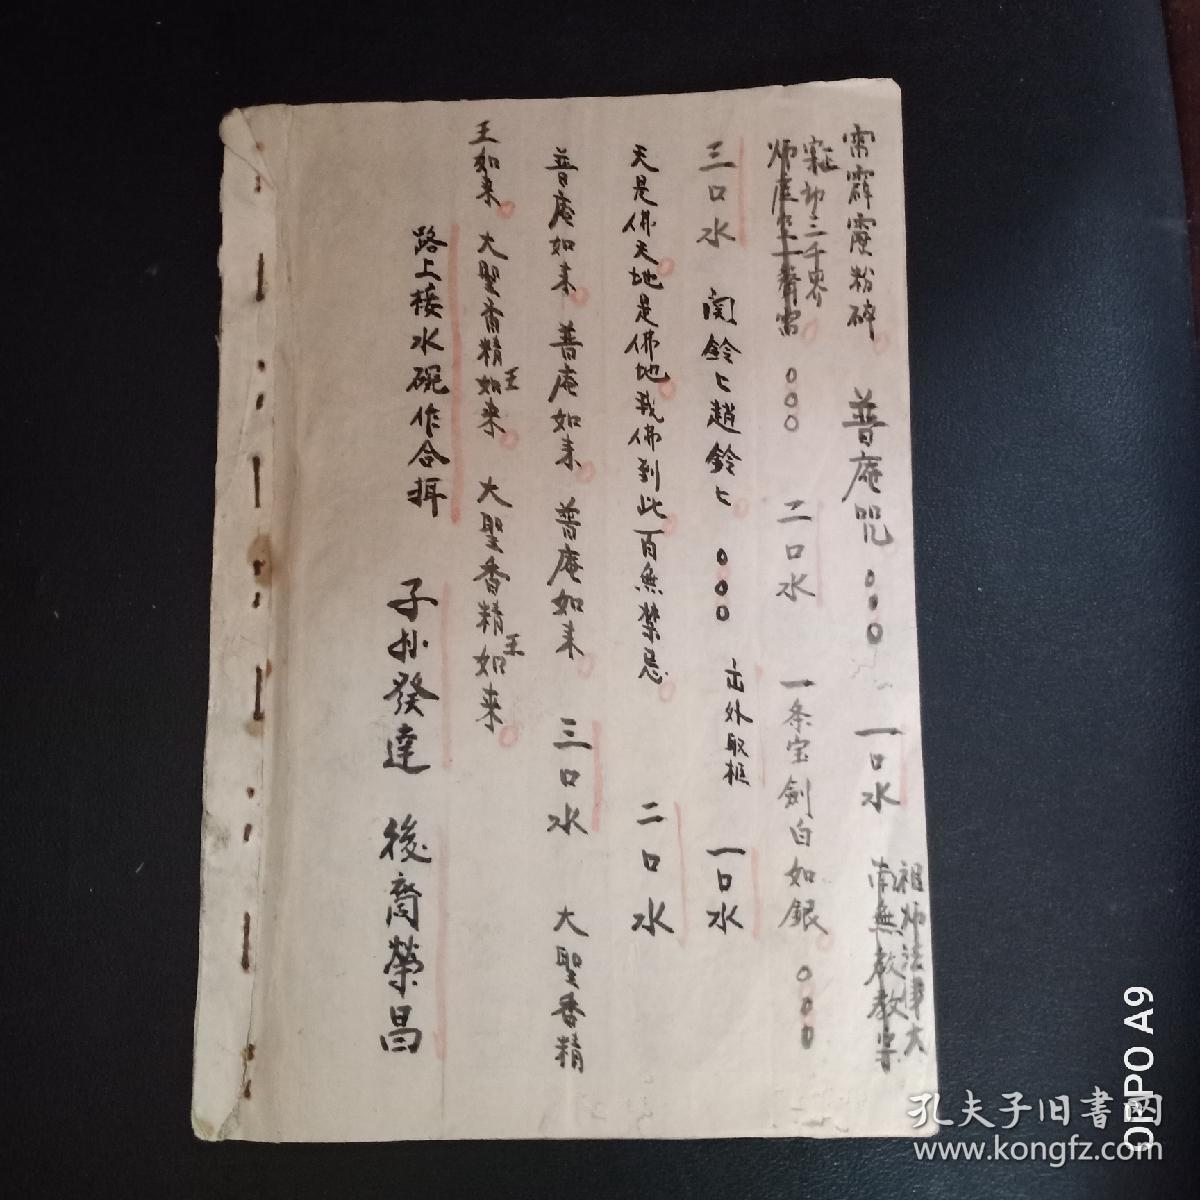 雷霹靂粉碎 普庵咒 一口水 祖师法律大
南無教教宗
界 二口水 一条宝劍白如銀
三口水 関鈴〻趙鈴〻 出外取柩 一口水
天是佛天地是佛地我佛到此百無禁忌 二口水
普庵如来 普庵如来 普庵如来 三口水 大聖香精
王如来 大聖香精王如来 大聖香精王如来
路上接水碗作合拜
子孙發達 後裔榮昌
孔夫子旧書网
www.kongfz.com
OPPO A9